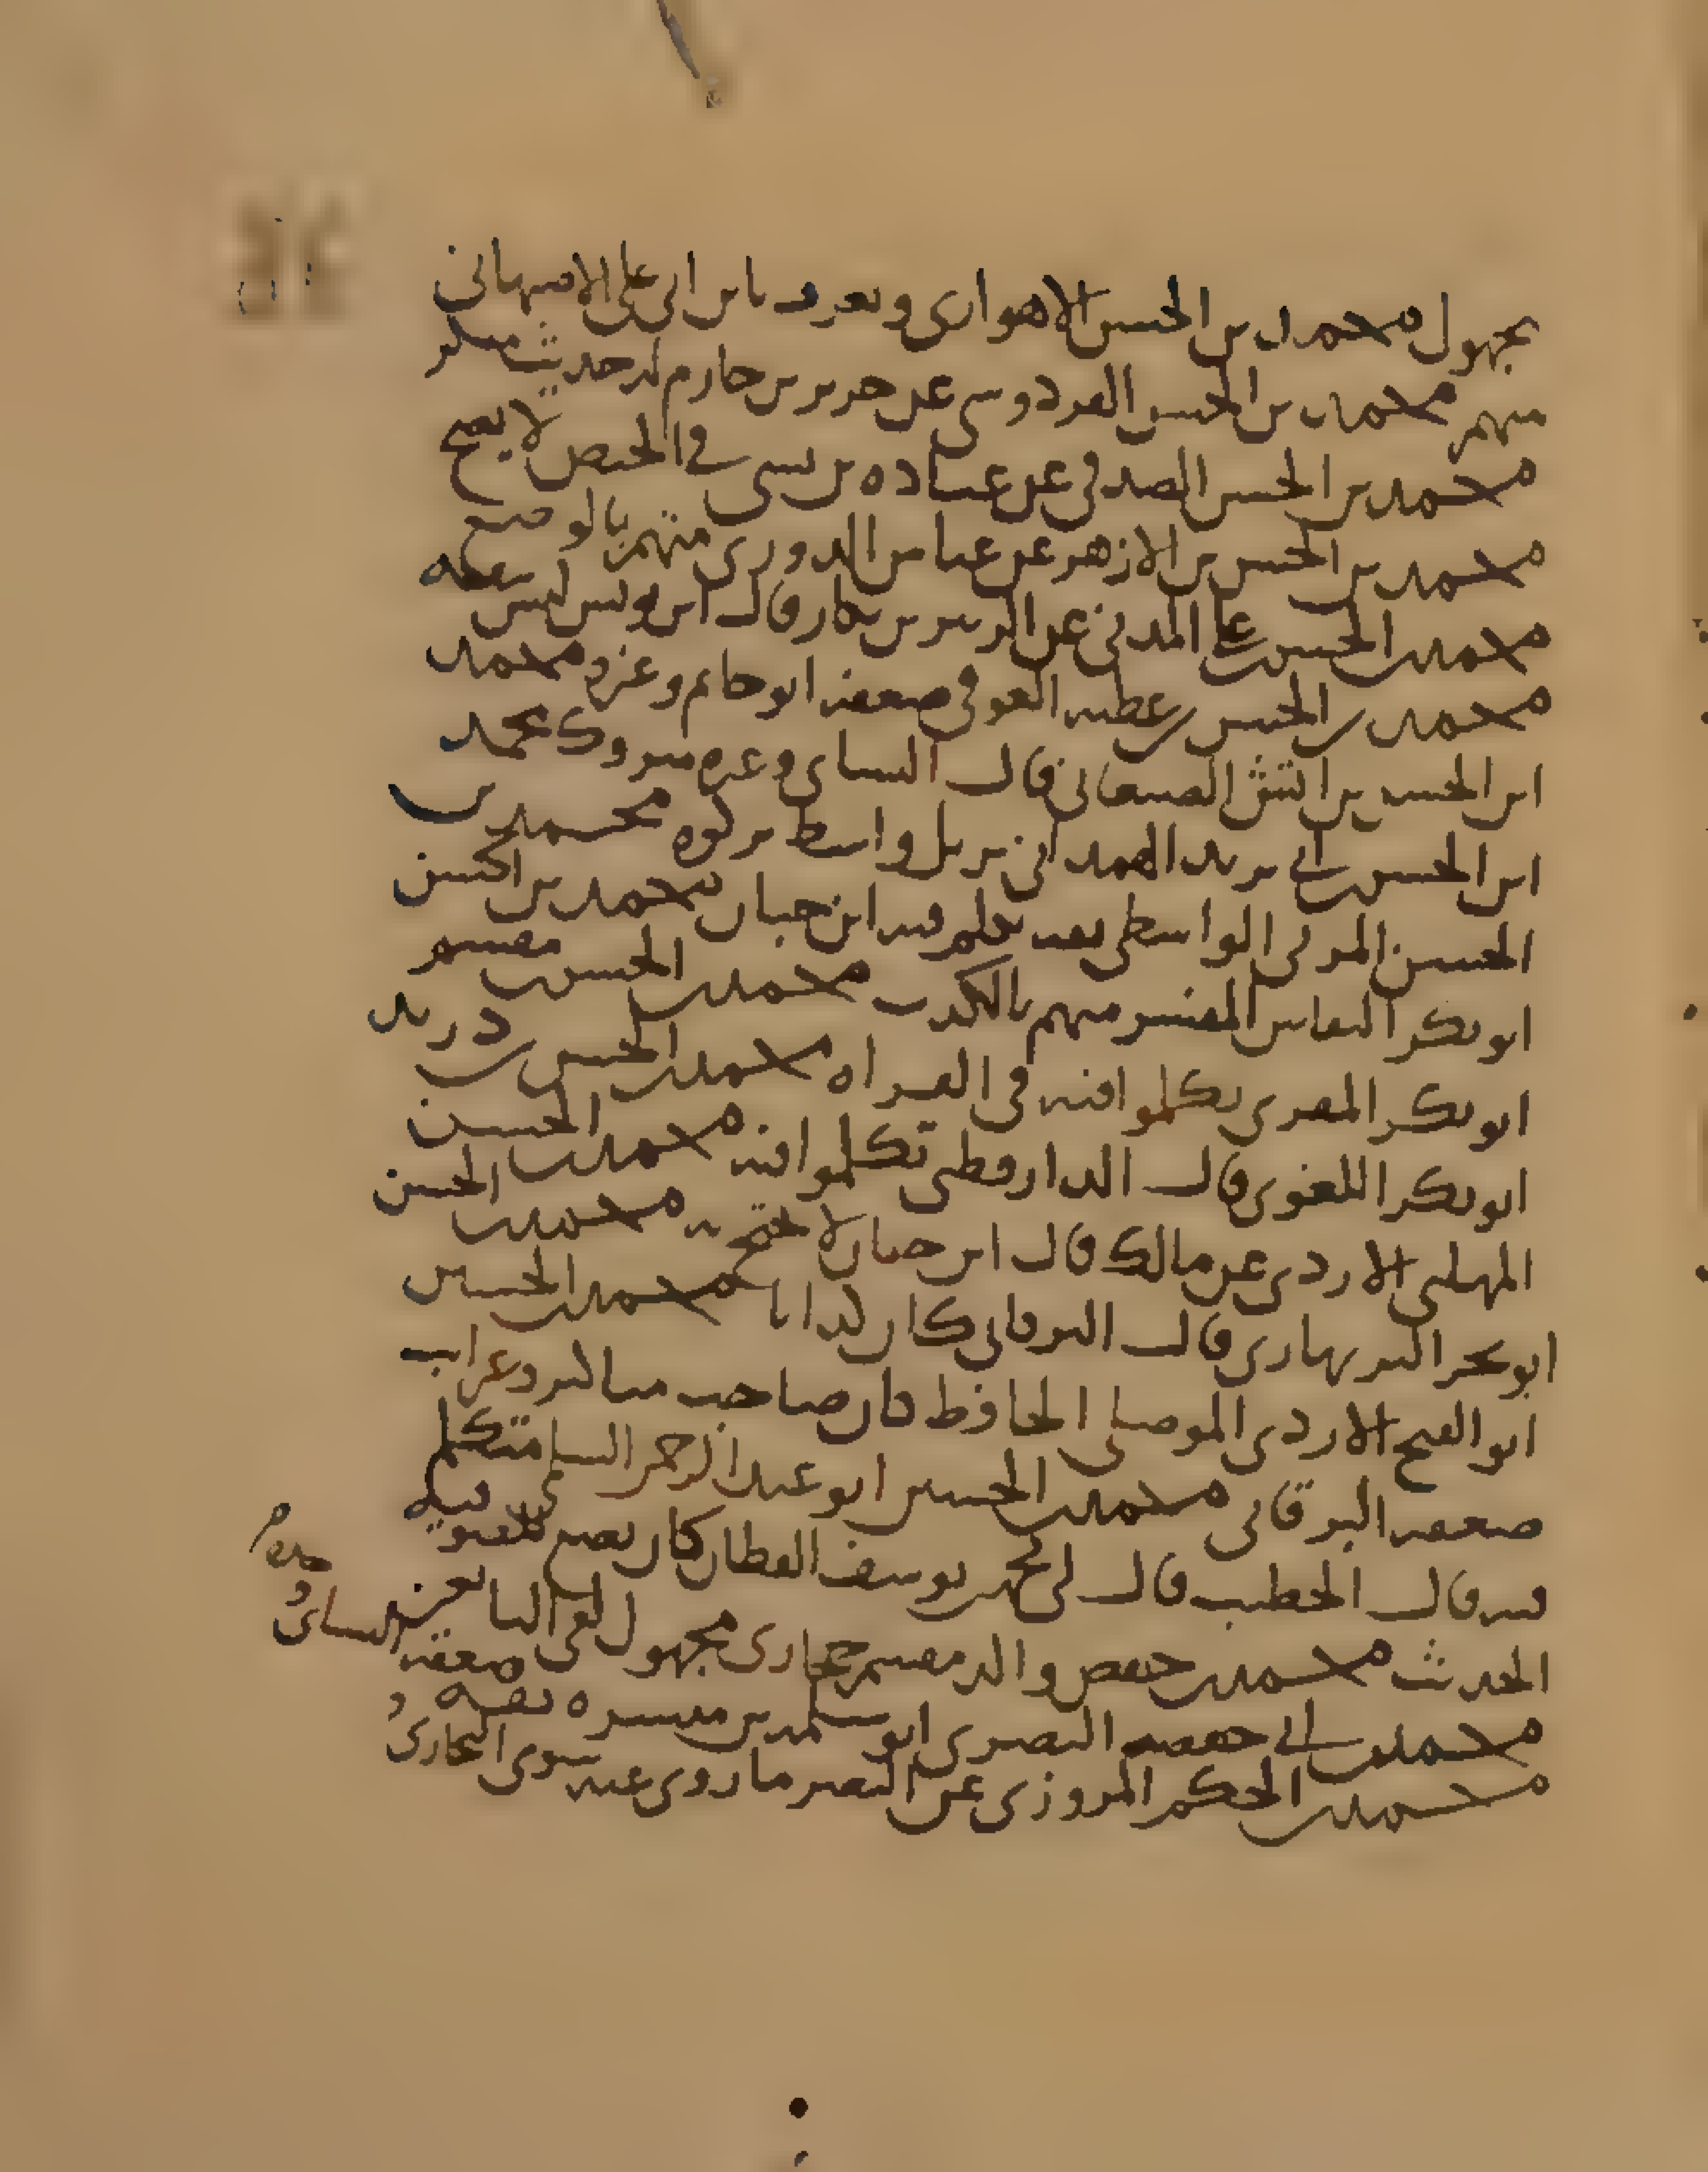 مجهول محمد بن الحسن الاهوازي ويعرف بابن ابي علي الاصبهاني
متهم محمد بن الحسن الفردوسي عن جرير بن حازم له حديث منكر
محمد بن الحسن الصدفي عن عباده بن نسي في الحيض لا يصح
محمد بن الحسن بن الازهر عن عباس الدوري متهم بالوضع
محمد بن الحسن بن علي المدني عن الزبير بن بكار قال ابن يونس ليس بثقه
محمد بن الحسن بن عطيه العوفي ضعفه ابو حاتم وغيره محمد
ابن الحسن بن اتش الصنعاني قال النسائي وغيره متروك محمد
ابن الحسن بن ابي يزيد الهمداني نزيل واسط تركوه محمد بن
الحسن المزني الواسطي ثقه تكلم فيه ابن حبان محمد بن الحسن
ابو بكر النقاش المفسر متهم بالكذب محمد بن الحسن بن مقسم
ابو بكر المقري تكلموا فيه في القراه محمد بن الحسن بن دريد
ابو بكر اللغوي قال الدارقطني تكلموا فيه محمد بن الحسن
المهلبي الازدي عن مالك قال ابن حبان لا يحتج به محمد بن الحسن
ابو بحر البربهاري قال البرقاني كان كذابا محمد بن الحسين
ابو الفتح الازدي الموصلي الحافظ كان صاحب مناكير وغرايب
ضعفه البرقاني محمد بن الحسين ابو عبد الرحمن السلمي متكلم
فيه قال الخطيب قال لي محمد بن يوسف القطان كان يضع للصوفيه
الحديث محمد بن حفص والد مقسم حجازي مجهول لقي التابعين
محمد بن ابي حفصه البصري ابو سلمه بن ميسره ثقه ضعفه النسائي
محمد بن الحكم المروزي عن النضر ما روى عنه سوى البخاري